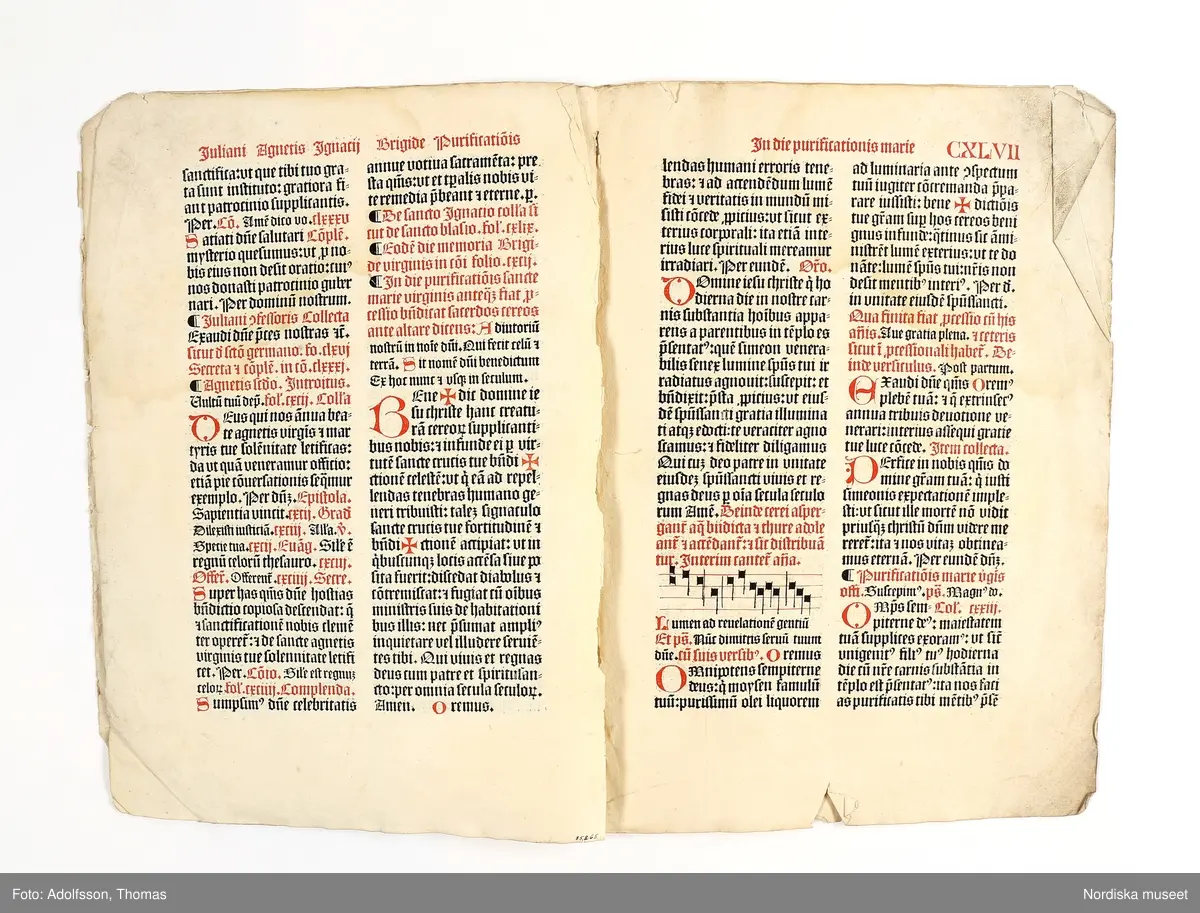 Juliani Agnetis Ignacij Brigide Purificatiõis
sanctifica: vt que tibi tuo gra-
ta sunt instituto: gratiora fi-
ant patrocinio supplicantis.
Per. Cõ. Amẽ dico vo. clxxxv
Satiati dñe salutari Cõplẽ.
mysterio quesumus: vt ꝓ no-
bis eius non desit oratio: cuiꝰ
nos donasti patrocinio guber
nari. Per dominũ nostrum.
¶ Juliani ꝯfessoris Collecta
Exaudi dñe p̃ces nostras ⁊ẽ.
sicut d̕ sctõ germano. fo. clxvj
Secreta ⁊ cõplẽ. in cõ. clxxxj.
¶ Agnetis scd̕o. Introitus.
Vultũ tuũ dep̃. fol. cxcij. Coll̕a
DEus qui nos ãnua bea-
te agnetis virgĩs ⁊ mar
tyris tue solẽnitate letificas:
da vt quã veneramur officio:
etiã pie cõuersationis seq̃mur
exemplo. Per dñꝫ. Epistola.
Sapientia vincit. cxcij. Grad̕
Dilexisti iusticiã. cxciij. All̕a. v̕.
Specie tua. cxcij. Euãg. Sil̕e ẽ
regnũ celorũ thesauro. cxciij.
Offer̃. Offerent̃. cxciiij. Secre.
Super has q̃s dñe hostias
bñdictio copiosa descendat: q̃
⁊ sanctificationẽ nobis clemẽ
ter operet̃: ⁊ de sancte agnetis
virginis tue solennitate letifi
cet. Per. Cõio. Sil̕e est regnuꝫ
celoꝝ fol. cxciiij. Complenda.
Sumpsimꝰ dñe celebritatis
annue votiua sacramẽta: pre
sta q̃s: vt et tp̃alis nobis vi-
te remedia p̃beant ⁊ eterne. p̲.
¶ De sancto Ignacio coll̕a si
cut de sancto blasio. fol. cxlix.
¶ Eodẽ die memoria Brigi-
de virginis in cõi folio. cxcij.
¶ In die purificatiõis sancte
marie virginis anteqꝫ fiat ꝓ-
cessio bñdicat sacerdos cereos
ante altare dicens: Adiutoriũ
nostrũ in noĩe dñi. Qui fecit celũ ⁊
terrã. Sit nomẽ dñi benedictum
Ex hoc nunc ⁊ vsqꝫ in seculum.
BEne ✠ dic domine ie
su christe hanc creatu-
rã cereoꝝ supplicanti-
bus nobis: ⁊ infunde ei ꝑ vir-
tutẽ sancte crucis tue bñdi ✠
ctionẽ celestẽ: vt q̕ eã ad repel-
lendas tenebras humano ge-
neri tribuisti: taleꝫ signaculo
sancte crucis tue fortitudinẽ ⁊
bñdi ✠ ctionẽ accipiat: vt in
q̕buscunqꝫ locis accẽsa siue po
sita fuerit: discedat diabolus ⁊
cõtremiscat: ⁊ fugiat cũ oĩbus
ministris suis de habitationi
bus illis: nec p̃sumat ampliꝰ
inquietare vel illudere seruiẽ-
tes tibi. Qui viuis et regnas
deus cum patre et spiritusan-
cto: per omnia secula seculoꝝ.
Amen. Oremus.
In die purificationis marie CXLVII
lendas humani erroris tene-
bras: ⁊ ad accendẽdum lumẽ
fidei ⁊ veritatis in mundũ mi
sisti cõcede ꝓpicius: vt sicut ex-
terius corporali: ita etiã inte-
rius luce spirituali mereamur
irradiari. Per eundẽ. Or̃o.
DOmine iesu christe q̕ ho
dierna die in nostre car-
nis substantia hoĩbus appa-
rens a parentibus in tẽplo es
p̃sentatꝰ: quẽ simeon venera-
bilis senex lumine spũs tui ir
radiatus agnouit: suscepit: et
bñdixit: p̃sta ꝓpicius: vt eius-
dẽ spũssancti gratia illumina
ti atqꝫ edocti: te veraciter agno
scamus: ⁊ fideliter diligamus
Qui cuꝫ deo patre in vnitate
eiusdeꝫ spũssancti viuis et re-
gnas deus ꝑ oĩa secula seculo
rum Amẽ. Deinde cerei asper-
gant̃ aq̃ bñdicta ⁊ thure adole
ant̃ ⁊ accẽdant̃: ⁊ sic distribuã
tur. Interim cantet̃ añа.
Lumen ad reuelationẽ gentiũ
Et ps̃. Nũc dimittis seruũ tuum
dñe. cũ suis versibꝰ. Oremus
OMnipotens sempiterne
deus: q̕ moysen famulũ
tuũ: purissimũ olei liquorem
ad luminaria ante ꝯspectum
tuũ iugiter cõcremanda p̃pa-
rare iussisti: bene ✠ dictiõis
tue gr̃am sup̲ hos cereos beni
gnus infunde: q̃tinus sic ãmi-
nistrẽt lumẽ exterius: vt te do
nãte: lumẽ spũs tui: nr̃is non
desit mentibꝰ interiꝰ. Per d.
in vnitate eiusdẽ spũssancti.
Qua finita fiat ꝓcessio cũ his
añis. Aue gratia plena. ⁊ ceteris
sicut ĩ ꝓcessionali habet̃. De-
inde versiculus. Post partum.
EXaudi dñe q̃s Oremꝰ
plebẽ tuã: ⁊ q̃ extrinsecꝰ
annua tribuis deuotione ve-
nerari: interius assequi gratie
tue luce cõcede. Item collecta.
PErfice in nobis q̃s do
mine gr̃am tuã: q̕ iusti
simeonis expectationẽ imple-
sti: vt sicut ille mortẽ nõ vidit
priusqꝫ christũ dñm videre me
reret̃: ita ⁊ nos vitaꝫ obtinea-
mus eternã. Per eundẽ dñꝫ.
¶ Purificatiõis marie v̕gĩs
offi. Suscepimꝰ. ps̃. Magnꝰ do.
OMp̃s sem- Col̕. cxxiij.
piterne deꝰ: maiestatem
tuã supplices exoramꝰ: vt sic̃
vnigenitꝰ filiꝰ tuꝰ hodierna
die cũ nr̃e carnis substãtia in
tẽplo est p̃sentatꝰ: ita nos faci
as purificatis tibi mẽtibꝰ p̃se
Foto: Adolfsson, Thomas
Nordiska museet